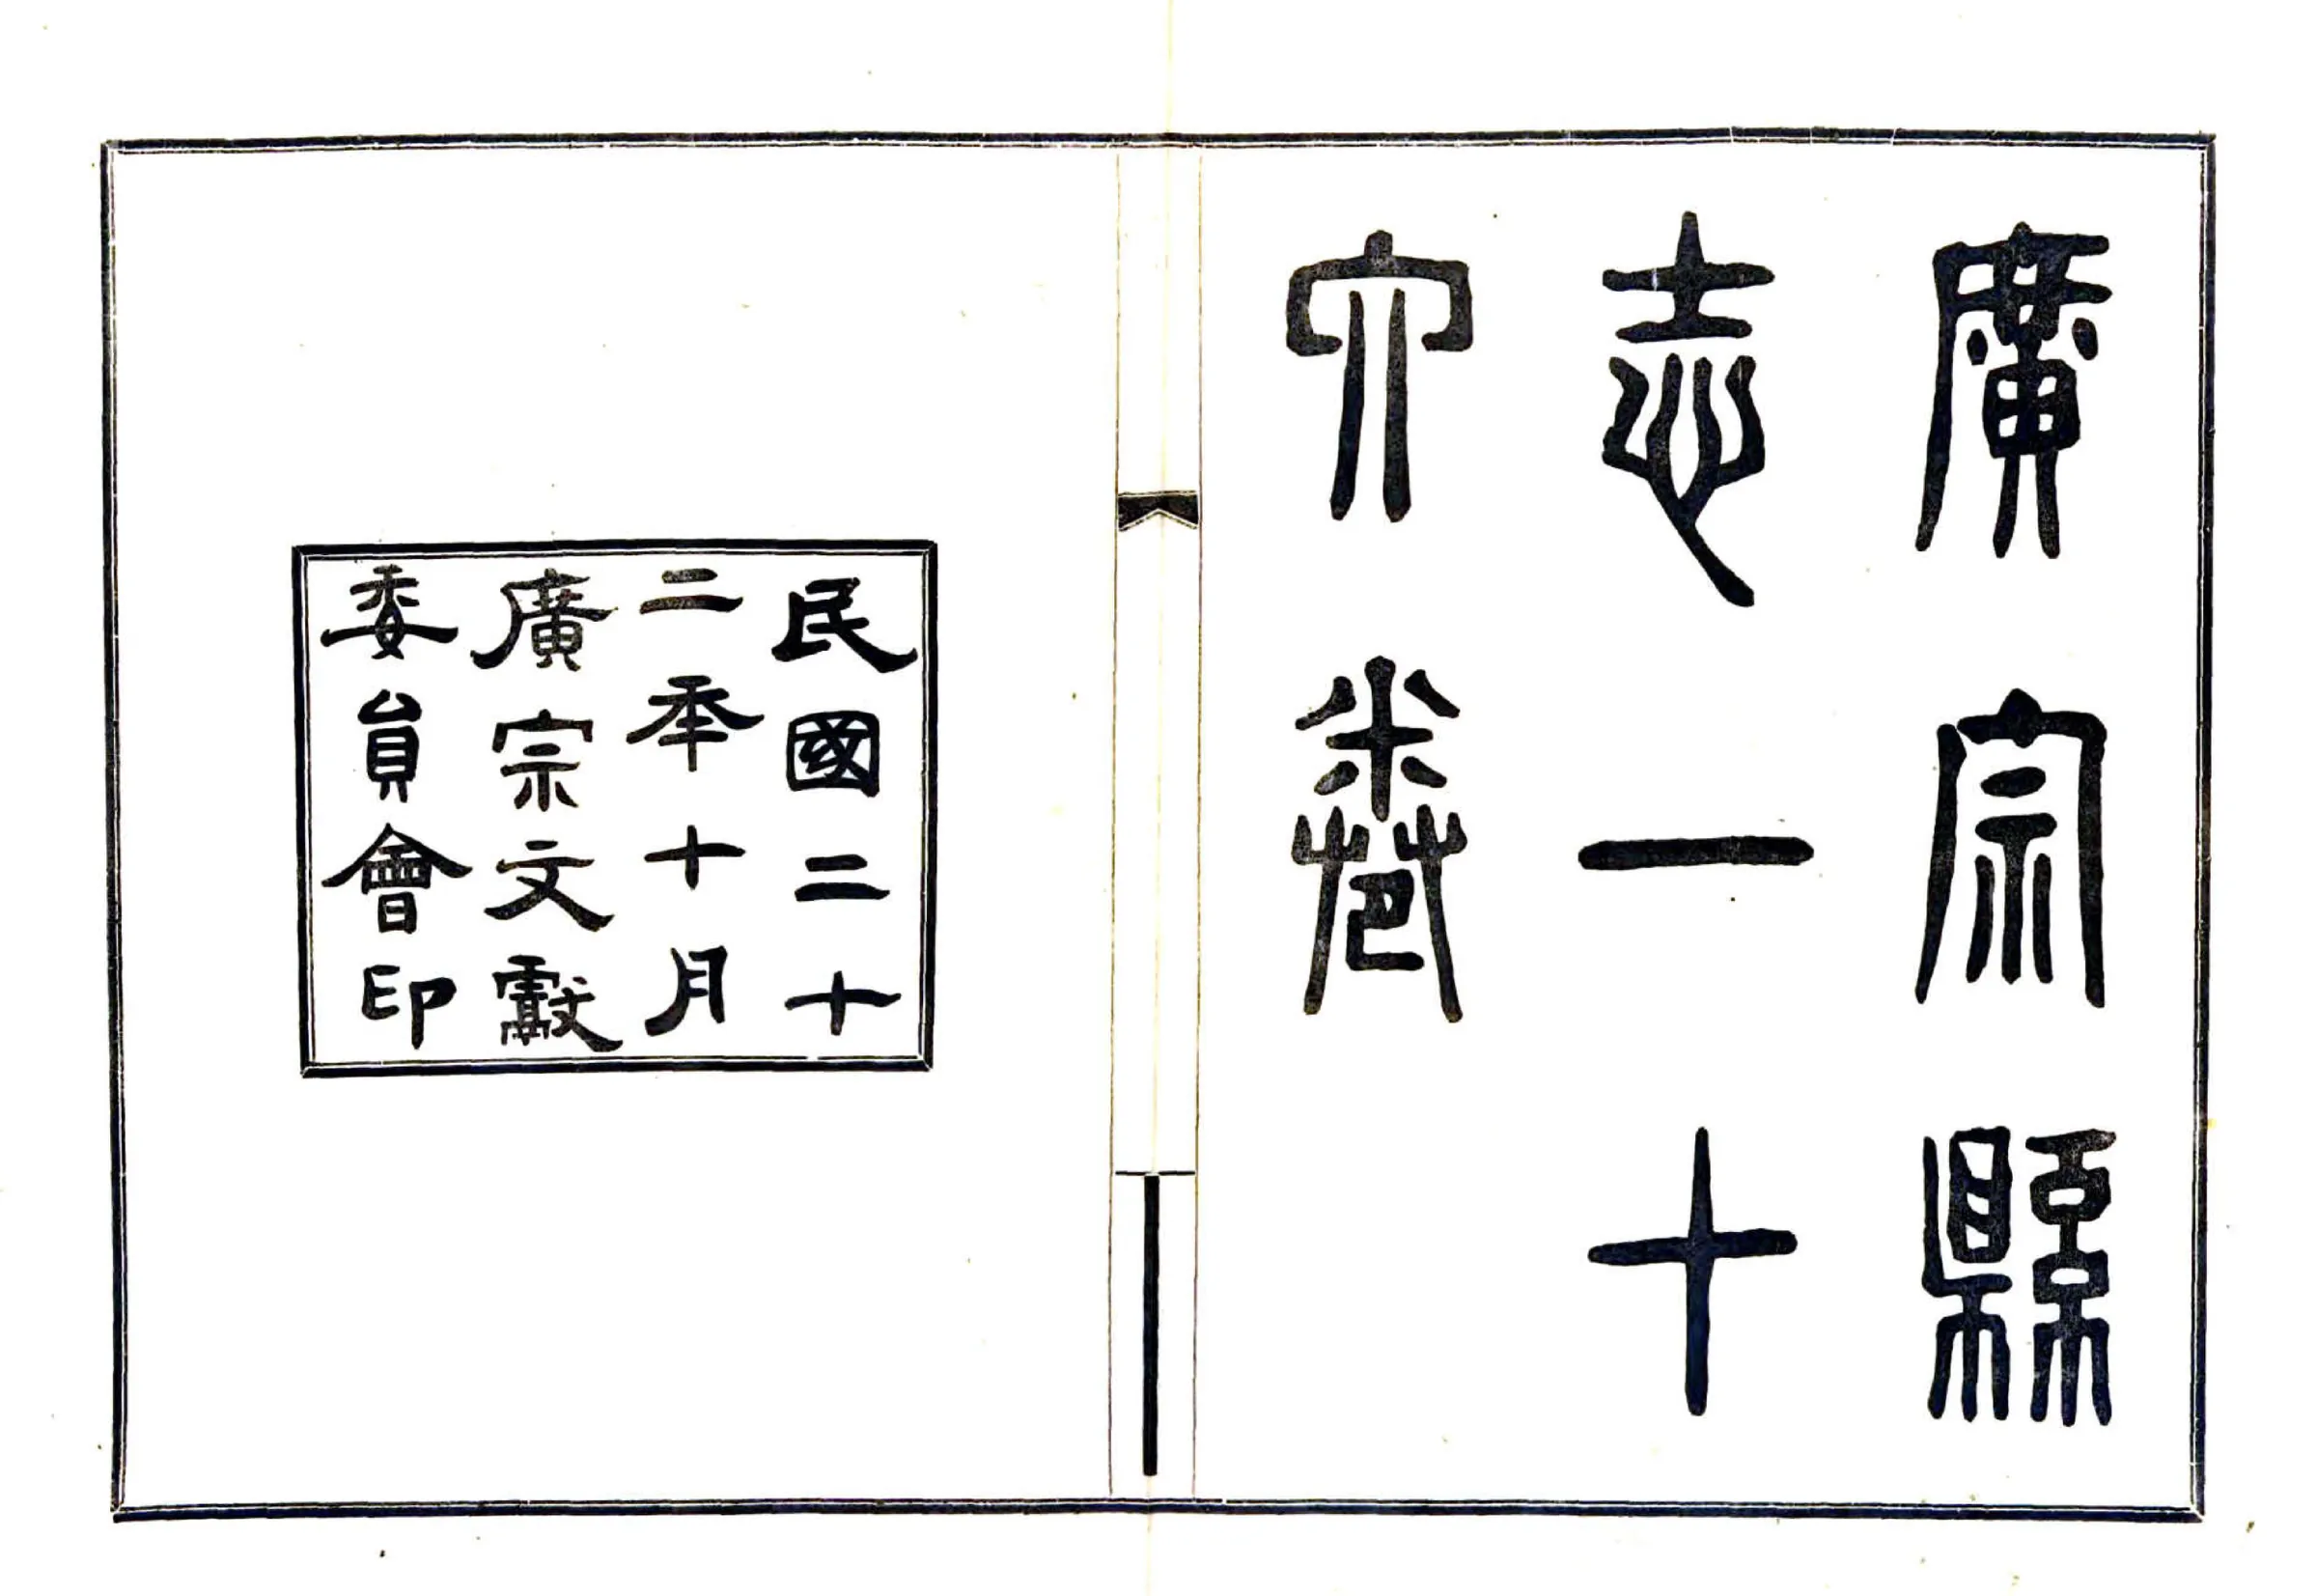 廣宗縣
志一十
六卷
民國二十
二年十月
廣宗文獻
委員會印